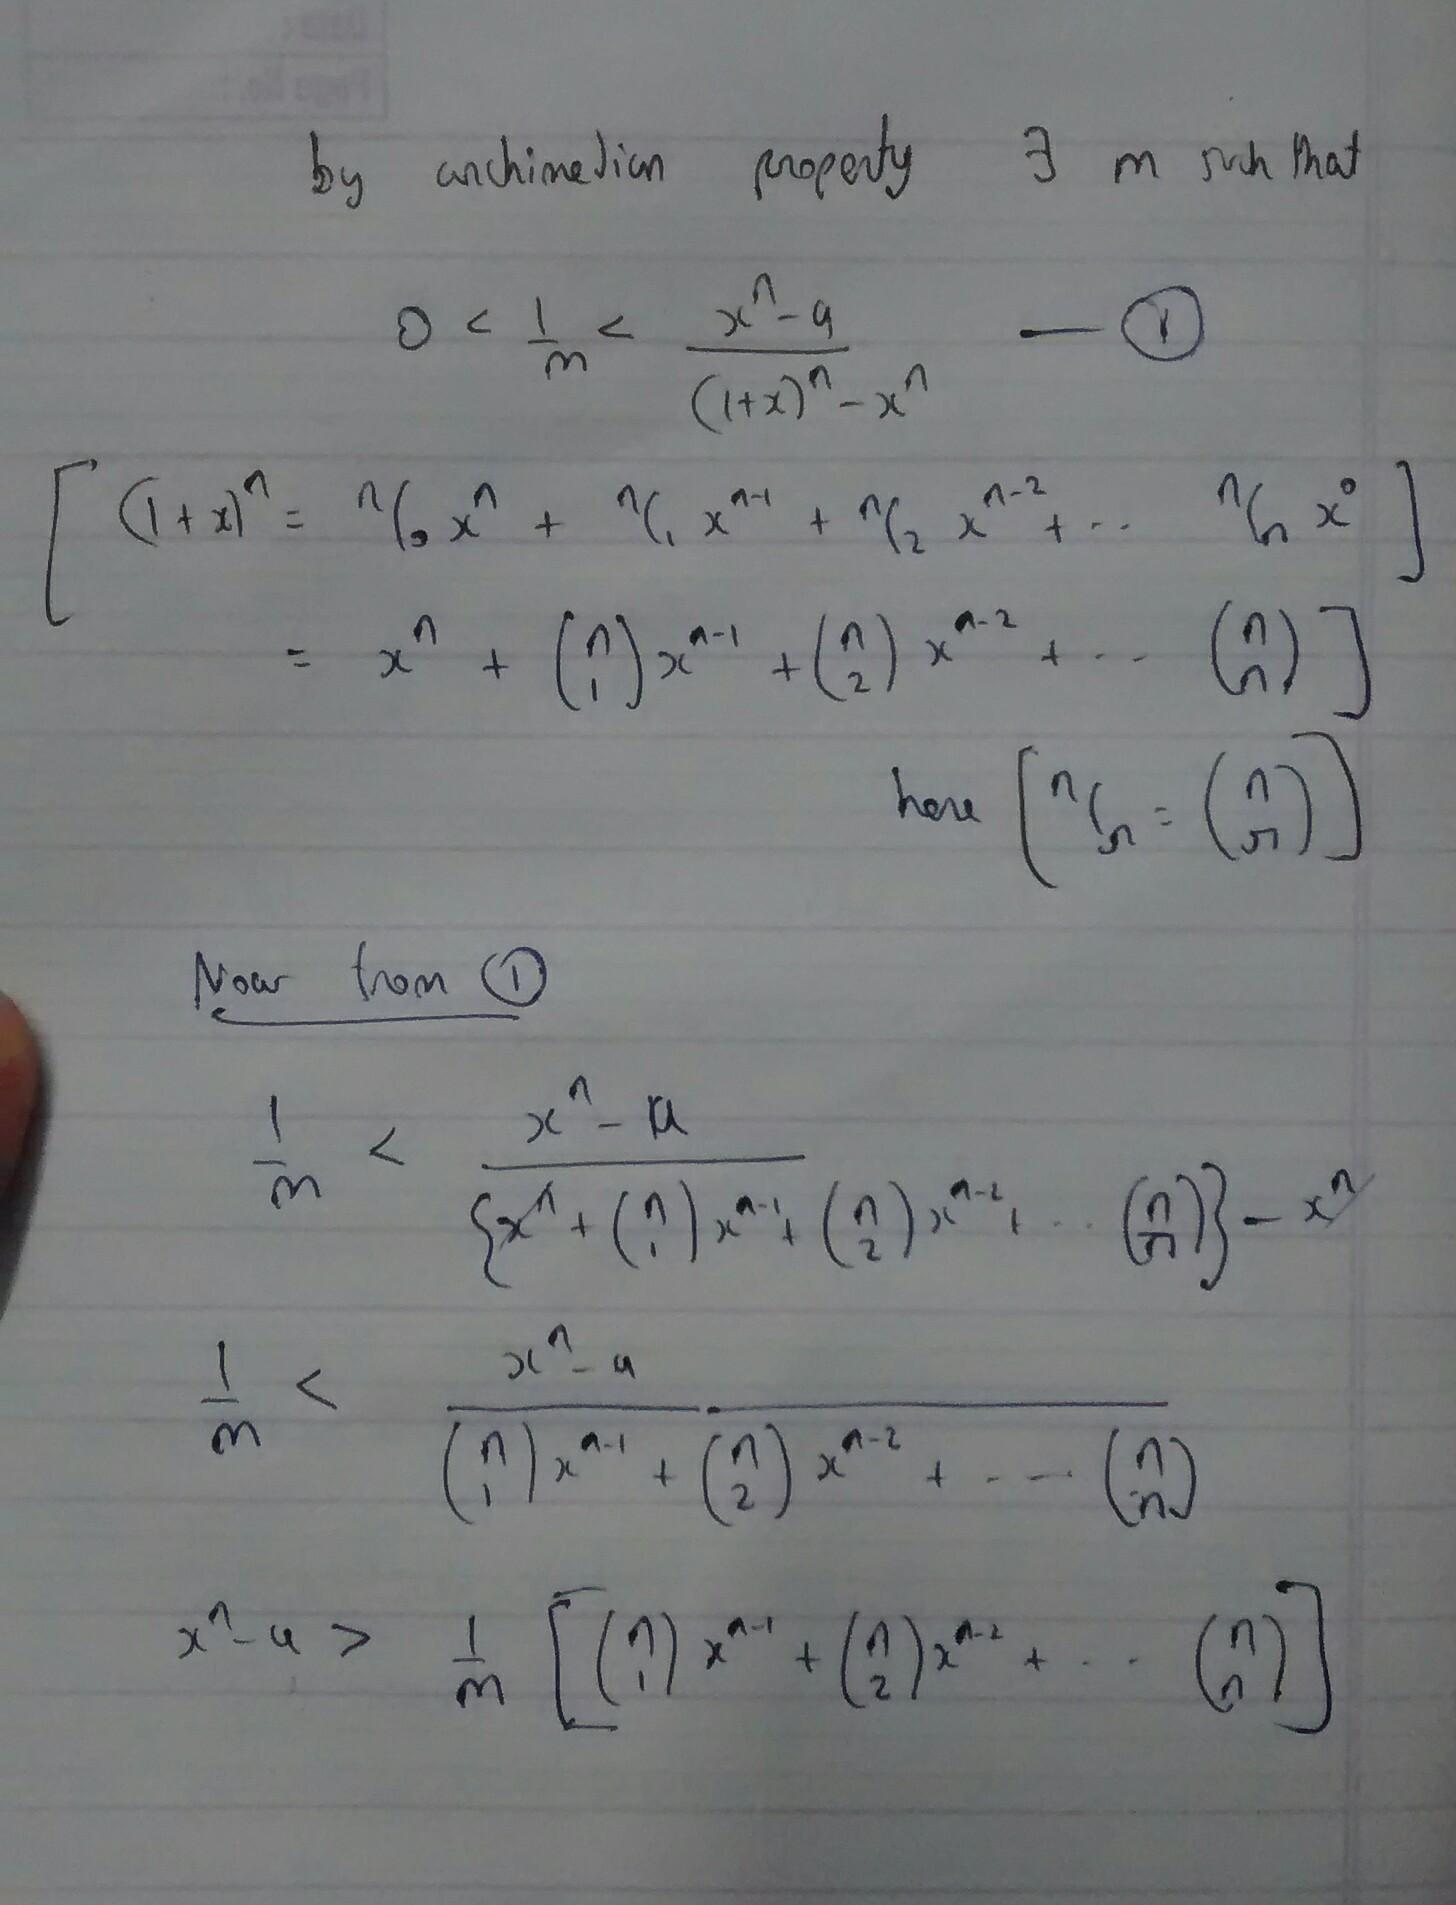 Date:
Page No.:
by archimedian property ∃ m such that
0 < 1/m < (xⁿ - a)/((1+x)ⁿ - xⁿ) — ①
[ (1+x)ⁿ = ⁿC₀ xⁿ + ⁿC₁ xⁿ⁻¹ + ⁿC₂ xⁿ⁻² + .. ⁿCₙ x⁰ ]
= xⁿ + (n 1) xⁿ⁻¹ + (n 2) xⁿ⁻² + .. (n n) ]
here [ ⁿCᵣ = (n r) ]
Now from ①
1/m < (xⁿ - a)/({xⁿ + (n 1) xⁿ⁻¹ + (n 2) xⁿ⁻² + .. (n n)} - xⁿ)
1/m < (xⁿ - a)/((n 1) xⁿ⁻¹ + (n 2) xⁿ⁻² + ... (n n))
xⁿ - a > 1/m [ (n 1) xⁿ⁻¹ + (n 2) xⁿ⁻² + ... (n n) ]